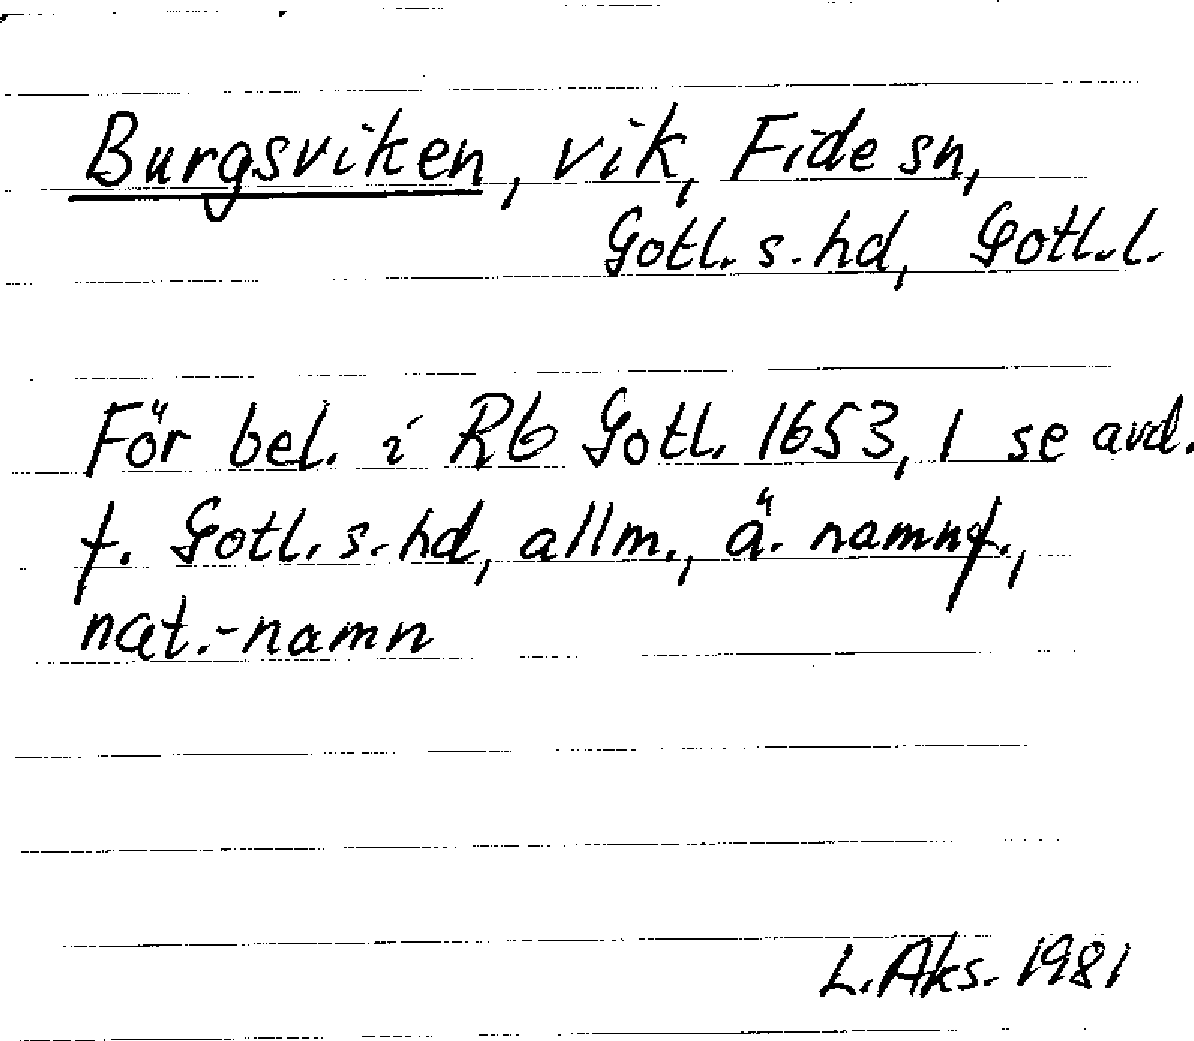 Burgsviken, vik, Fide sn,
Gotl. s. hd, Gotl. l.
För bel. i Rb Gotl. 1653, 1 se avd.
f. Gotl. s. hd, allm., ä. namnf.,
nat.-namn
L. Aks. 1981